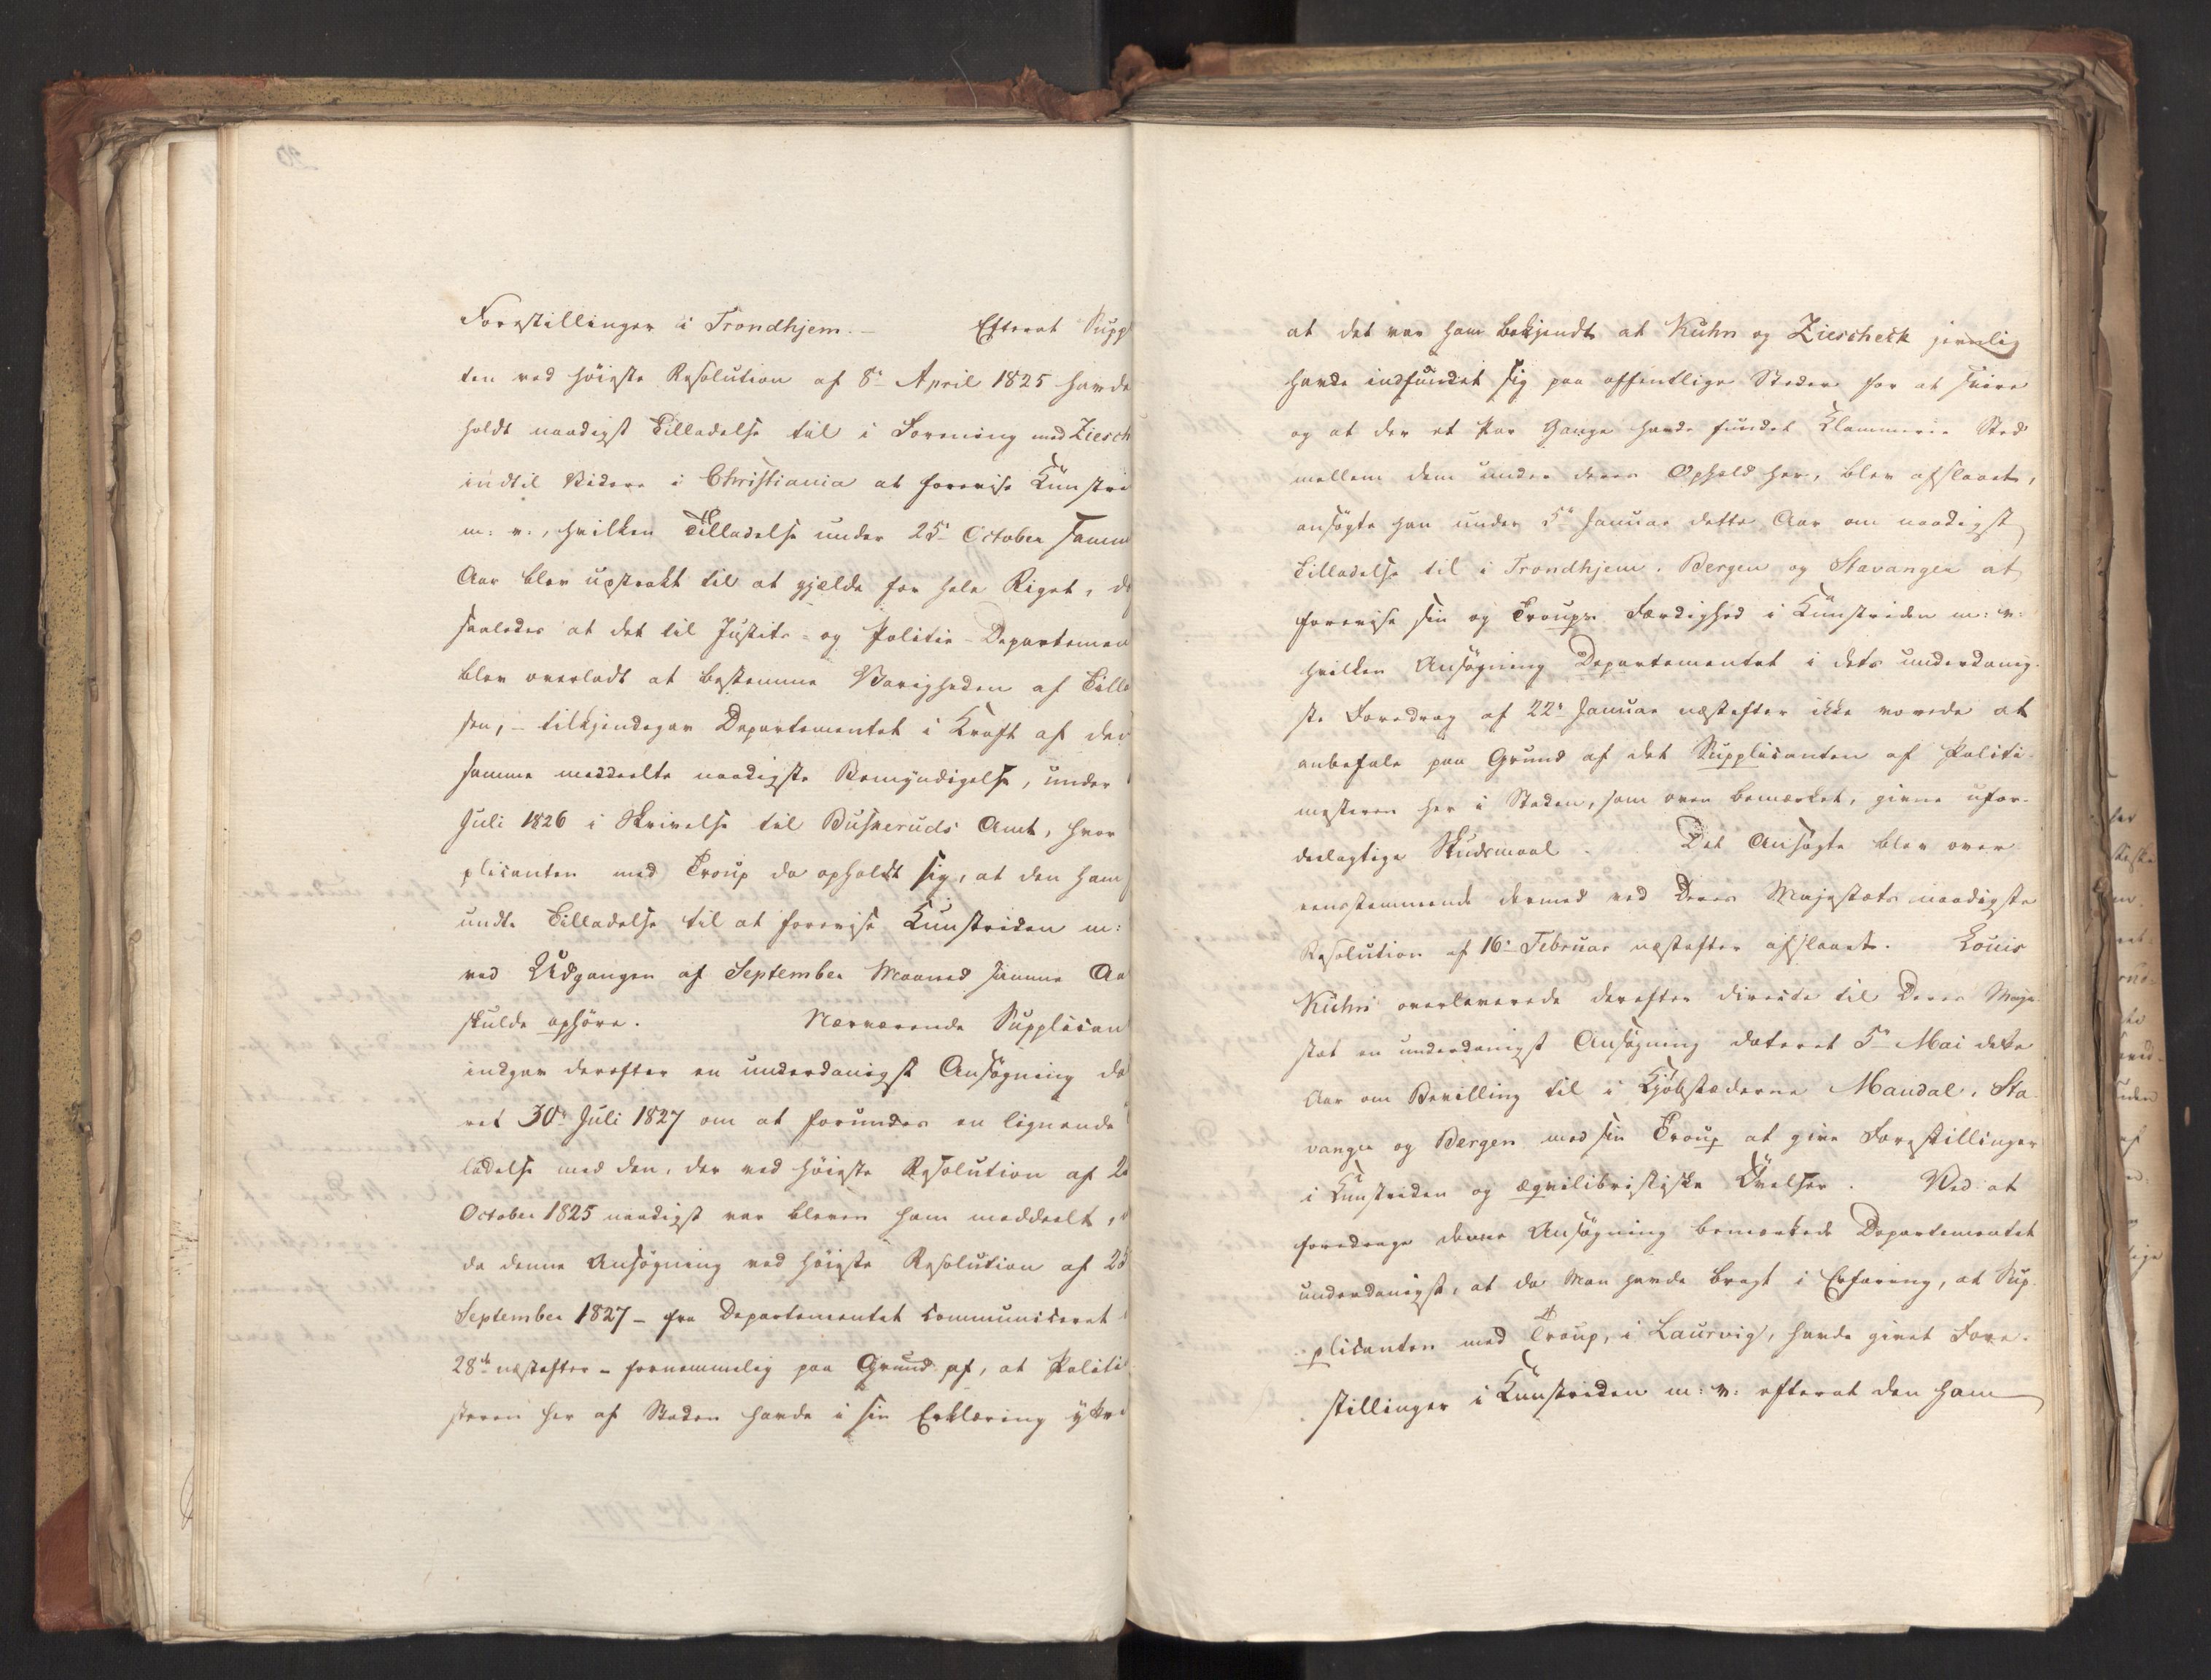 Forestillinger i Trondhjem. – Efterat Suppl
ten ved høieste Resolution af 8de April 1825 havde
holdt naadigst Tilladelse til i Forening med Ziesch
indtil Videre i Christiania at forevise Kunstri
m: v:, hvilken Tilladelse under 25de October samm
Aar blev udstrakt til at gjælde for hele Riget, d
saaledes at det til Justits- og Politie-Departemen
blev overladt at bestemme Varigheden af Tilla
sen, – tilkjendegav Departementet i Kraft af den
samme meddeelte naadigste Bemyndigelse, under
Juli 1826 i Skrivelse til Buskeruds Amt, hvor
plicanten med Troup da opholdt sig, at den ham
undte Tilladelse til at forevise Kunstriden m:
ved Udgangen af September Maaned samme Aa
skulde ophøre. Nærværende Supplican
indgav derefter en underdanigst Ansøgning da
ret 30te Juli 1827 om at forundes en lignende
ladelse med den, der ved høieste Resolution af 2
October 1825 naadigst var bleven ham meddeelt,
da denne Ansøgning ved høieste Resolution af 25
September 1827 – fra Departementet communiceret
28de næstefter – fornemmelig paa Grund af, at Politi
steren her af Staden havde i sin Erklæring yttre
at det var ham bekjendt at Kuhn og Ziescheck jevnlig
havde indfundet sig paa offentlige Steder for at svire
og at der et Par Gange havde fundet Klammerie Sted
mellem dem under deres Ophold her, blev afslaaet,
ansøgte han under 5te Januar dette Aar om naadigst
Tilladelse til i Trondhjem, Bergen og Stavanger at
forevise sin og Troups Færdighed i Kunstriden m: v:
hvilken Ansøgning Departementet i dets underdanig-
ste Foredrag af 22de Januar næstefter ikke vovede at
anbefale paa Grund af det Supplicanten af Politi-
mesteren her i Staden, som oven bemærket, givne ufor-
deelagtige Skudsmaal. Det Ansøgte blev over-
eensstemmende dermed ved Deres Majestæts naadigste
Resolution af 16de Februar næstefter afslaaet. Louis
Kuhn overleverede derefter directe til Deres Maje-
stæt en underdanigst Ansøgning dateret 5te Mai dette
Aar om Bevilling til i Kjøbstæderne Mandal, Sta-
vanger og Bergen med sin Troup at give Forestillinger
i Kunstriden og æqvilibristiske Øvelser. Ved at
foredrage denne Ansøgning bemærkede Departementet
underdanigst, at da Man havde bragt i Erfaring, at Sup-
plicanten med Troup, i Laurvig, havde givet Fore-
stillinger i Kunstriden m: v: efterat den ham